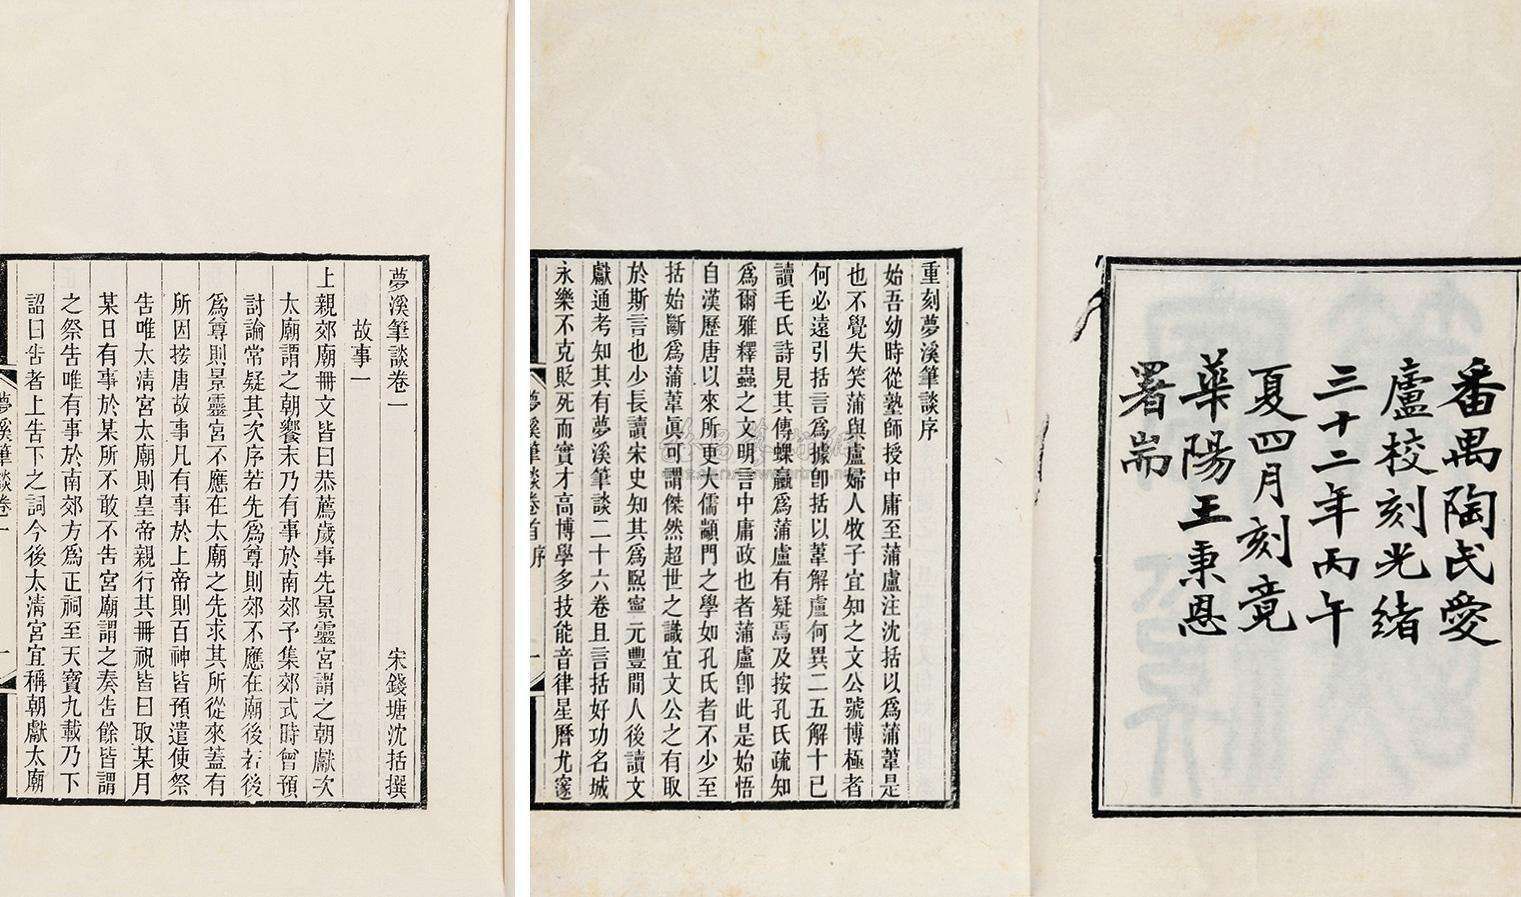 番禺陶氏愛
廬校刻光緒
三十二年丙午
夏四月刻竟
華陽王秉恩
署耑
重刻夢溪筆談序
始吾幼時從塾師授中庸至蒲盧注沈括以爲蒲葦是
也不覺失笑蒲與盧婦人牧子宜知之文公號博極者
何必遠引括言爲據卽括以葦解盧何異二五解十已
讀毛氏詩見其傳蜾蠃爲蒲盧有疑焉及按孔氏疏知
爲爾雅釋蟲之文明言中庸政也者蒲盧卽此是始悟
自漢歷唐以來所更大儒顓門之學如孔氏者不少至
括始斷爲蒲葦眞可謂傑然超世之識宜文公之有取
於斯言也少長讀宋史知其爲熙寧元豐閒人後讀文
獻通考知其有夢溪筆談二十六卷且言括好功名城
永樂不克貶死而實才高博學多技能音律星曆尤邃
夢溪筆談卷首序
一
夢溪筆談卷一
宋錢塘沈括撰
故事一
上親郊廟冊文皆曰恭薦歲事先景靈宮謂之朝獻次
太廟謂之朝饗末乃有事於南郊予集郊式時曾預
討論常疑其次序若先爲尊則郊不應在廟後若後
爲尊則景靈宮不應在太廟之先求其所從來蓋有
所因按唐故事凡有事於上帝則百神皆預遣使祭
告唯太清宮太廟則皇帝親行其冊祝皆曰取某月
某日有事於某所不敢不告宮廟謂之奏告餘皆謂
之祭告唯有事於南郊方爲正祠至天寶九載乃下
詔曰告者上告下之詞今後太清宮宜稱朝獻太廟
夢溪筆談卷一
一